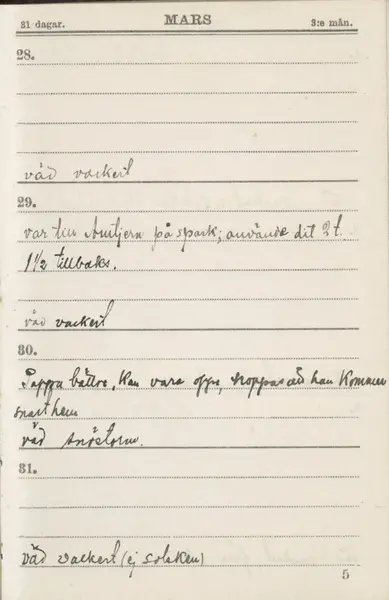 31 dagar. MARS 3:e mån.
28.
väd vackert
29.
var till Amtjern på spark; använde dit 2 t.
1 1/2 tillbaks.
väd vackert
30.
Pappa bättre, kan vara oppe, hoppas att han kommer
snart hem
väd snöstorm.
31.
väd vackert (ej solsken)
5